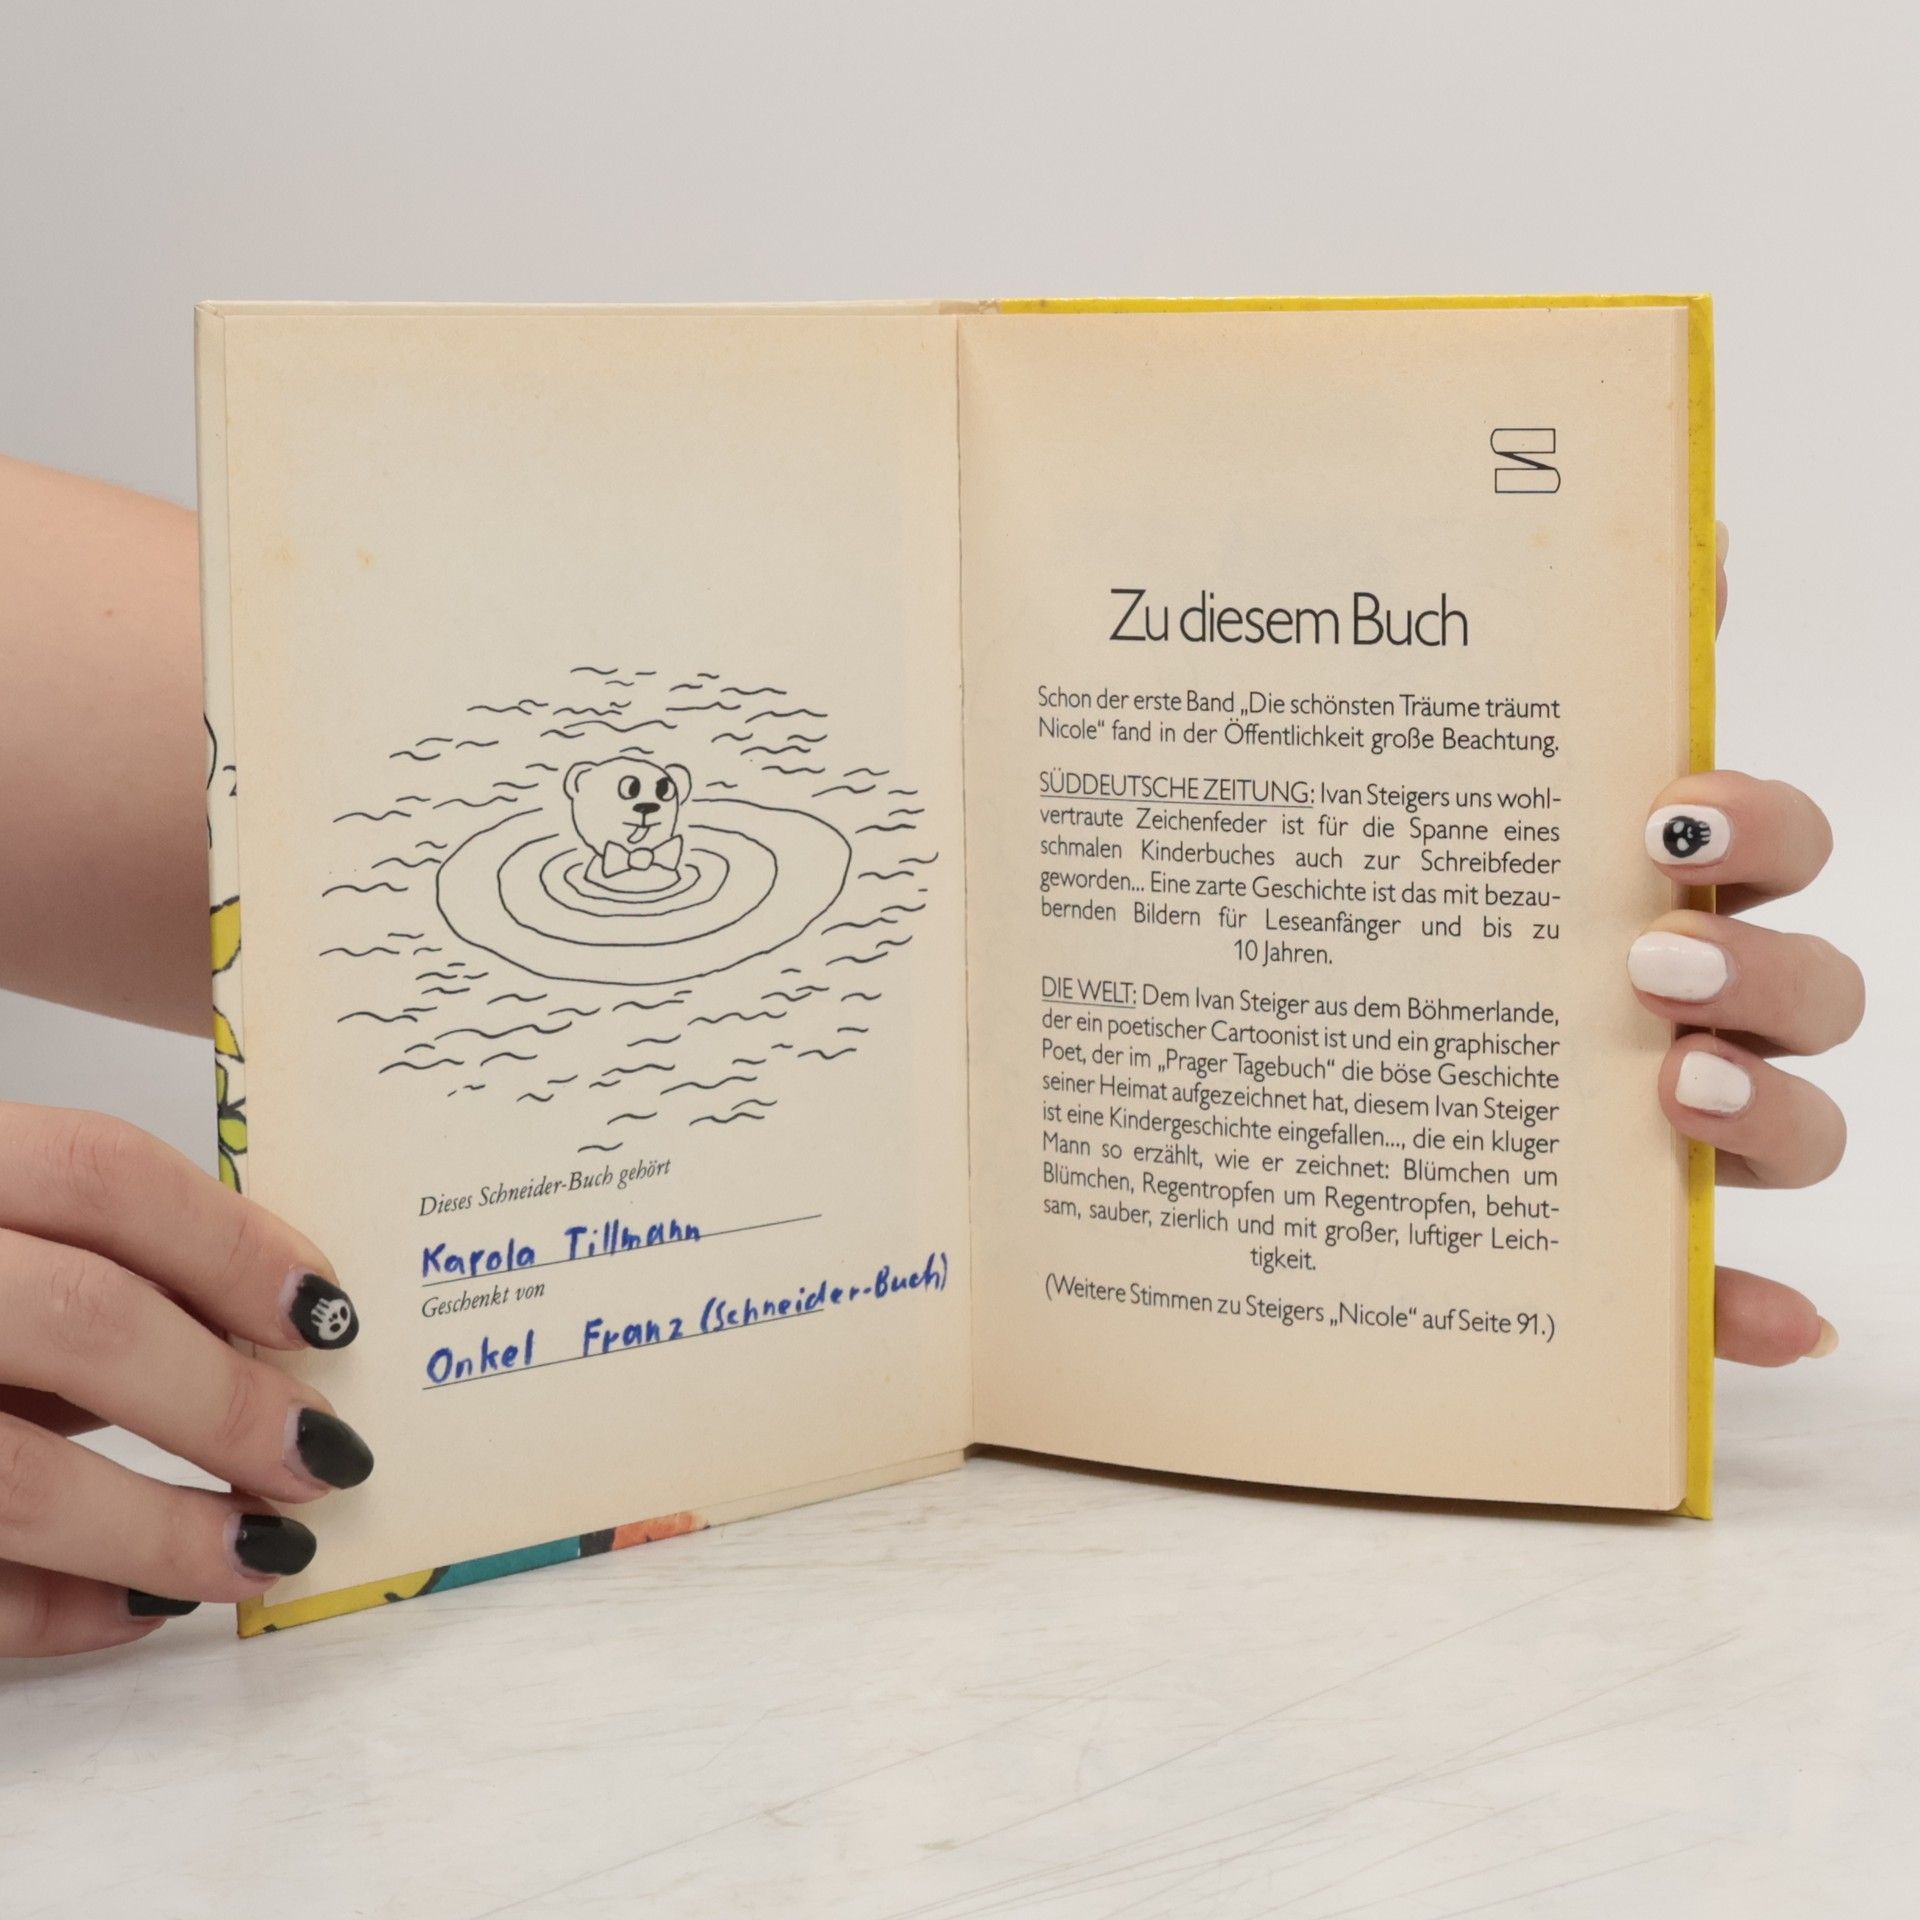 Dieses Schneider-Buch gehört
Karola Tillmann
Geschenkt von
Onkel Franz (Schneider-Buch)
Zu diesem Buch
Schon der erste Band „Die schönsten Träume träumt
Nicole“ fand in der Öffentlichkeit große Beachtung.
SÜDDEUTSCHE ZEITUNG: Ivan Steigers uns wohl-
vertraute Zeichenfeder ist für die Spanne eines
schmalen Kinderbuches auch zur Schreibfeder
geworden... Eine zarte Geschichte ist das mit bezau-
bernden Bildern für Leseanfänger und bis zu
10 Jahren.
DIE WELT: Dem Ivan Steiger aus dem Böhmerlande,
der ein poetischer Cartoonist ist und ein graphischer
Poet, der im „Prager Tagebuch“ die böse Geschichte
seiner Heimat aufgezeichnet hat, diesem Ivan Steiger
ist eine Kindergeschichte eingefallen..., die ein kluger
Mann so erzählt, wie er zeichnet: Blümchen um
Blümchen, Regentropfen um Regentropfen, behut-
sam, sauber, zierlich und mit großer, luftiger Leich-
tigkeit.
(Weitere Stimmen zu Steigers „Nicole“ auf Seite 91.)